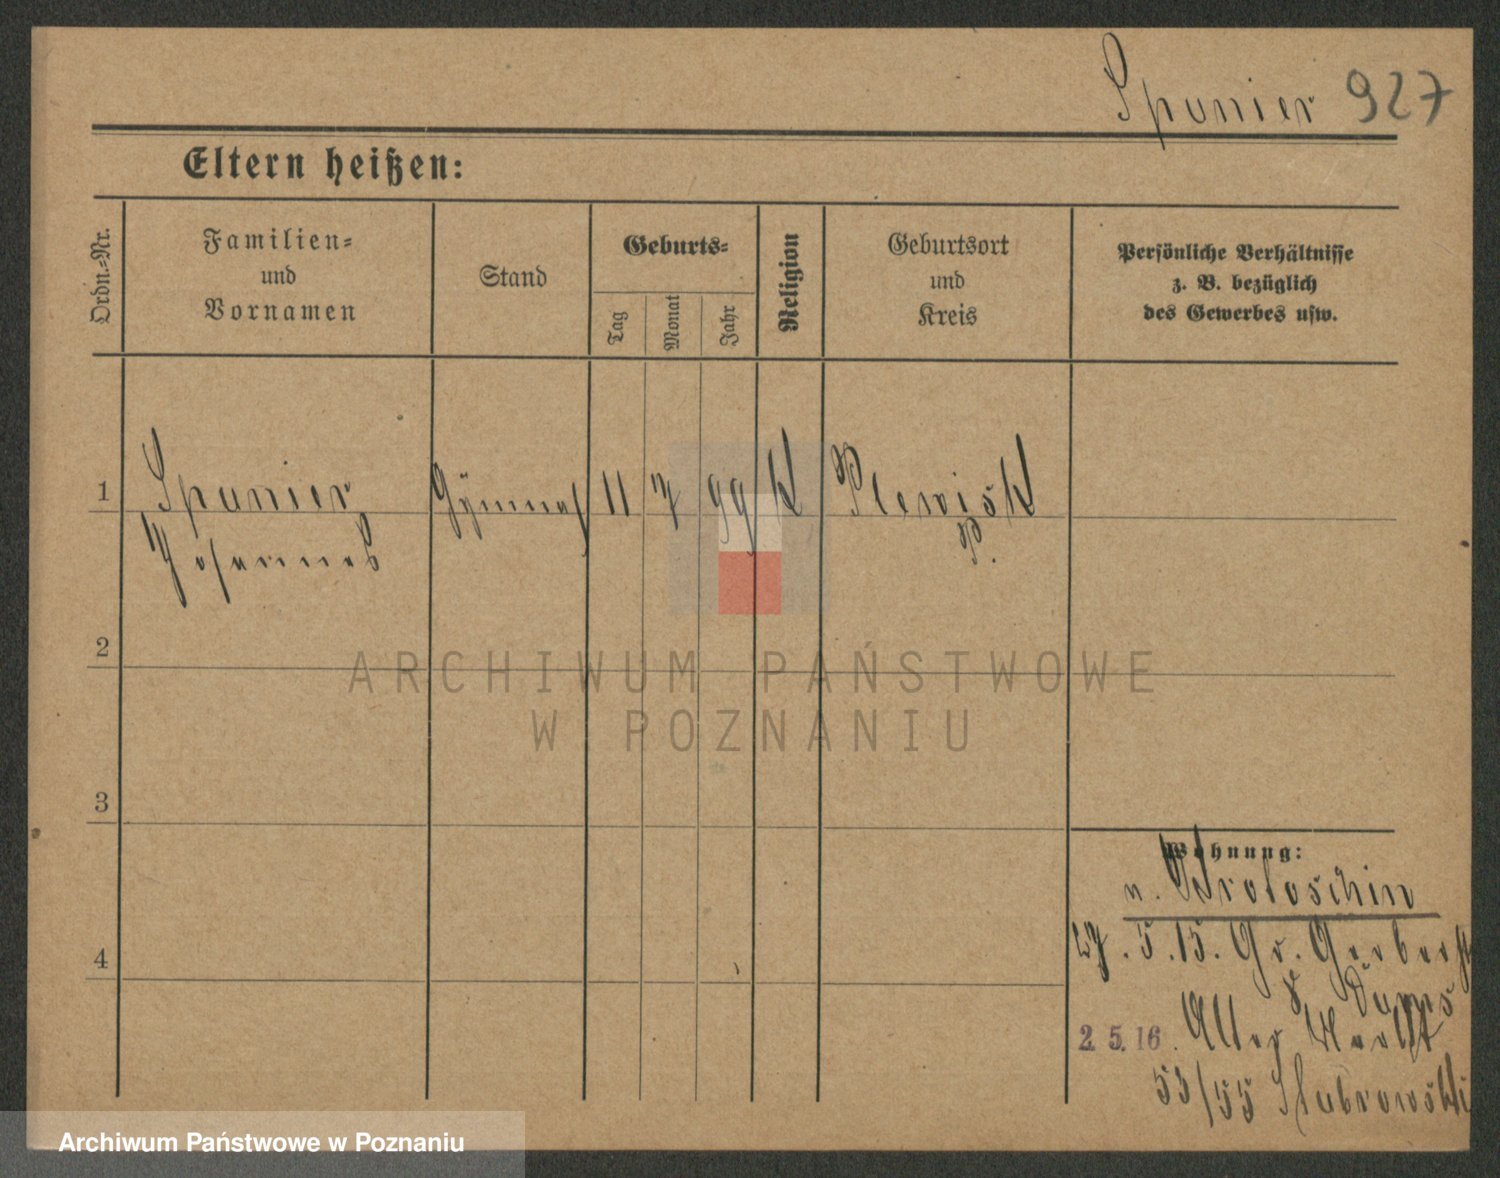 Spanier 927
Eltern heißen:
Ordn.-Nr.
Familien-
und
Vornamen
Stand
Geburts-
Tag
Monat
Jahr
Religion
Geburtsort
und
Kreis
Persönliche Verhältnisse
z. B. bezüglich
des Gewerbes usw.
1 Spanier Gymnas 11 7 99 K Plewisk
Johannes P.
2
3
4
Wohnung:
n. Krotoschin
27.5.15. Gr. Gerberst
8 Dums
2. 5. 16. Alter Markt
53/55 Slabrowski
ARCHIWUM PAŃSTWOWE
W POZNANIU
Archiwum Państwowe w Poznaniu